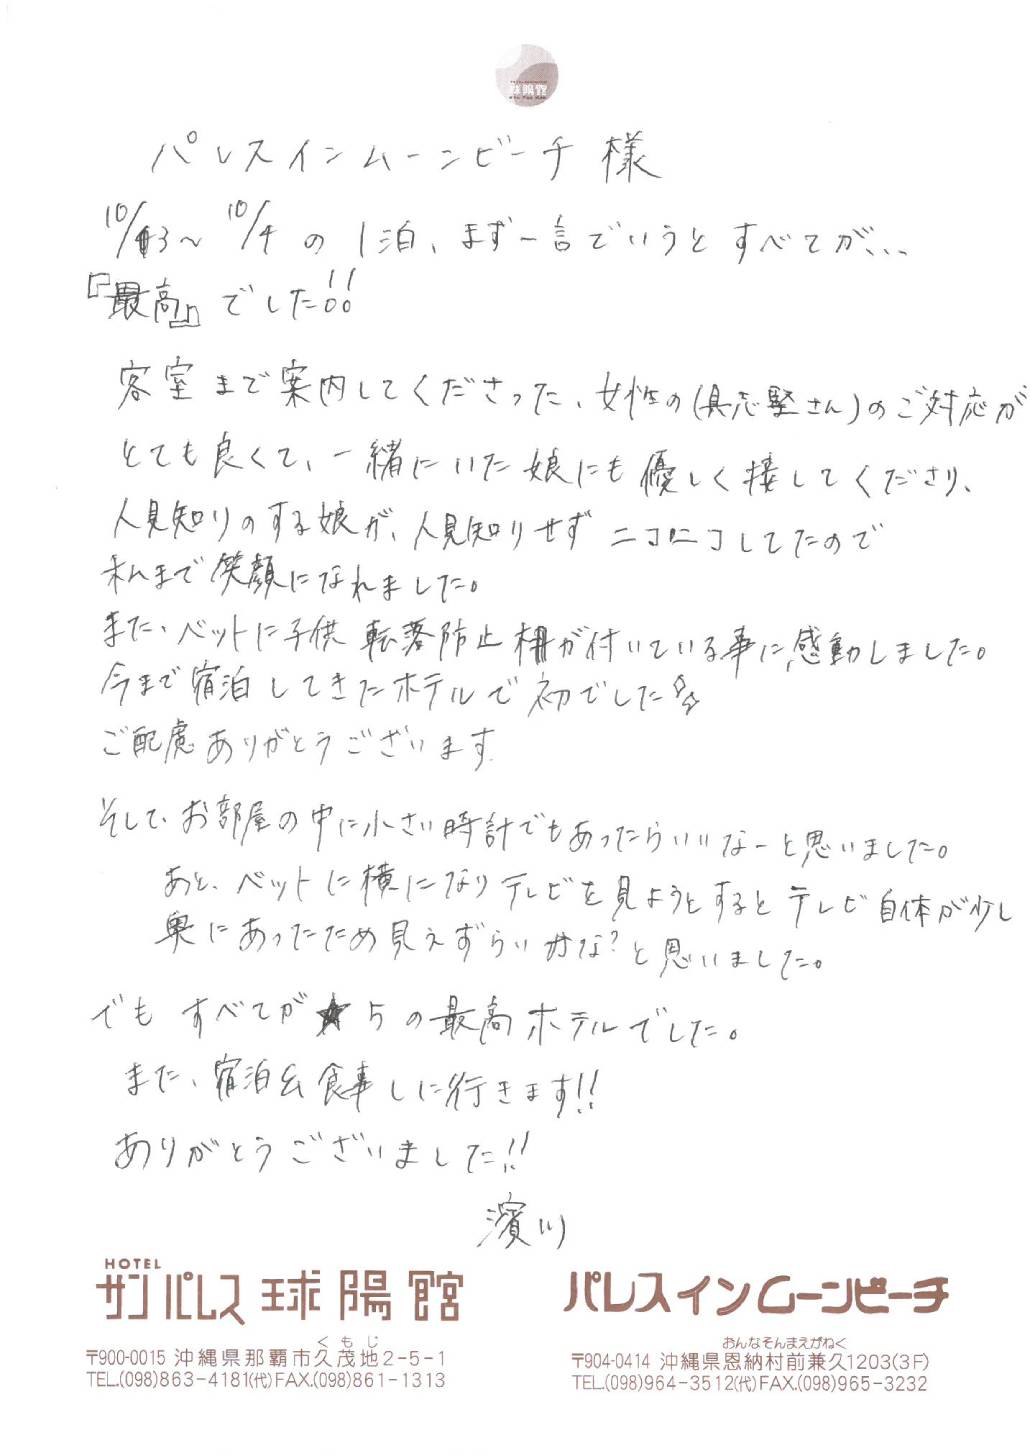 球陽館
パレスインムーンビーチ 様
10/3～10/4 の1泊、まず一言でいうとすべてが、、、
『最高』でした!!
客室まで案内してくださった、女性の(具志堅さん)のご対応が
とても良くて、一緒にいた娘にも優しく接してくださり、
人見知りのする娘が、人見知りせずニコニコしてたので
私まで笑顔になれました。
また、ベットに子供転落防止柵が付いている事に、感動しました。
今まで宿泊してきたホテルで初でした☆
ご配慮ありがとうございます
そして、お部屋の中に小さい時計でもあったらいいなーと思いました。
あと、ベットに横になりテレビを見ようとするとテレビ自体が少し
奥にあったため見えずらいかな?と思いました。
でもすべてが★5の最高ホテルでした。
また、宿泊&食事しに行きます!!
ありがとうございました!!
濱川
HOTEL
サンパレス球陽館
くもじ
〒900-0015 沖縄県那覇市久茂地2-5-1
TEL.(098)863-4181(代)FAX.(098)861-1313
パレスインムーンビーチ
おんなそんまえがねく
〒904-0414 沖縄県恩納村前兼久1203(3F)
TEL.(098)964-3512(代)FAX.(098)965-3232